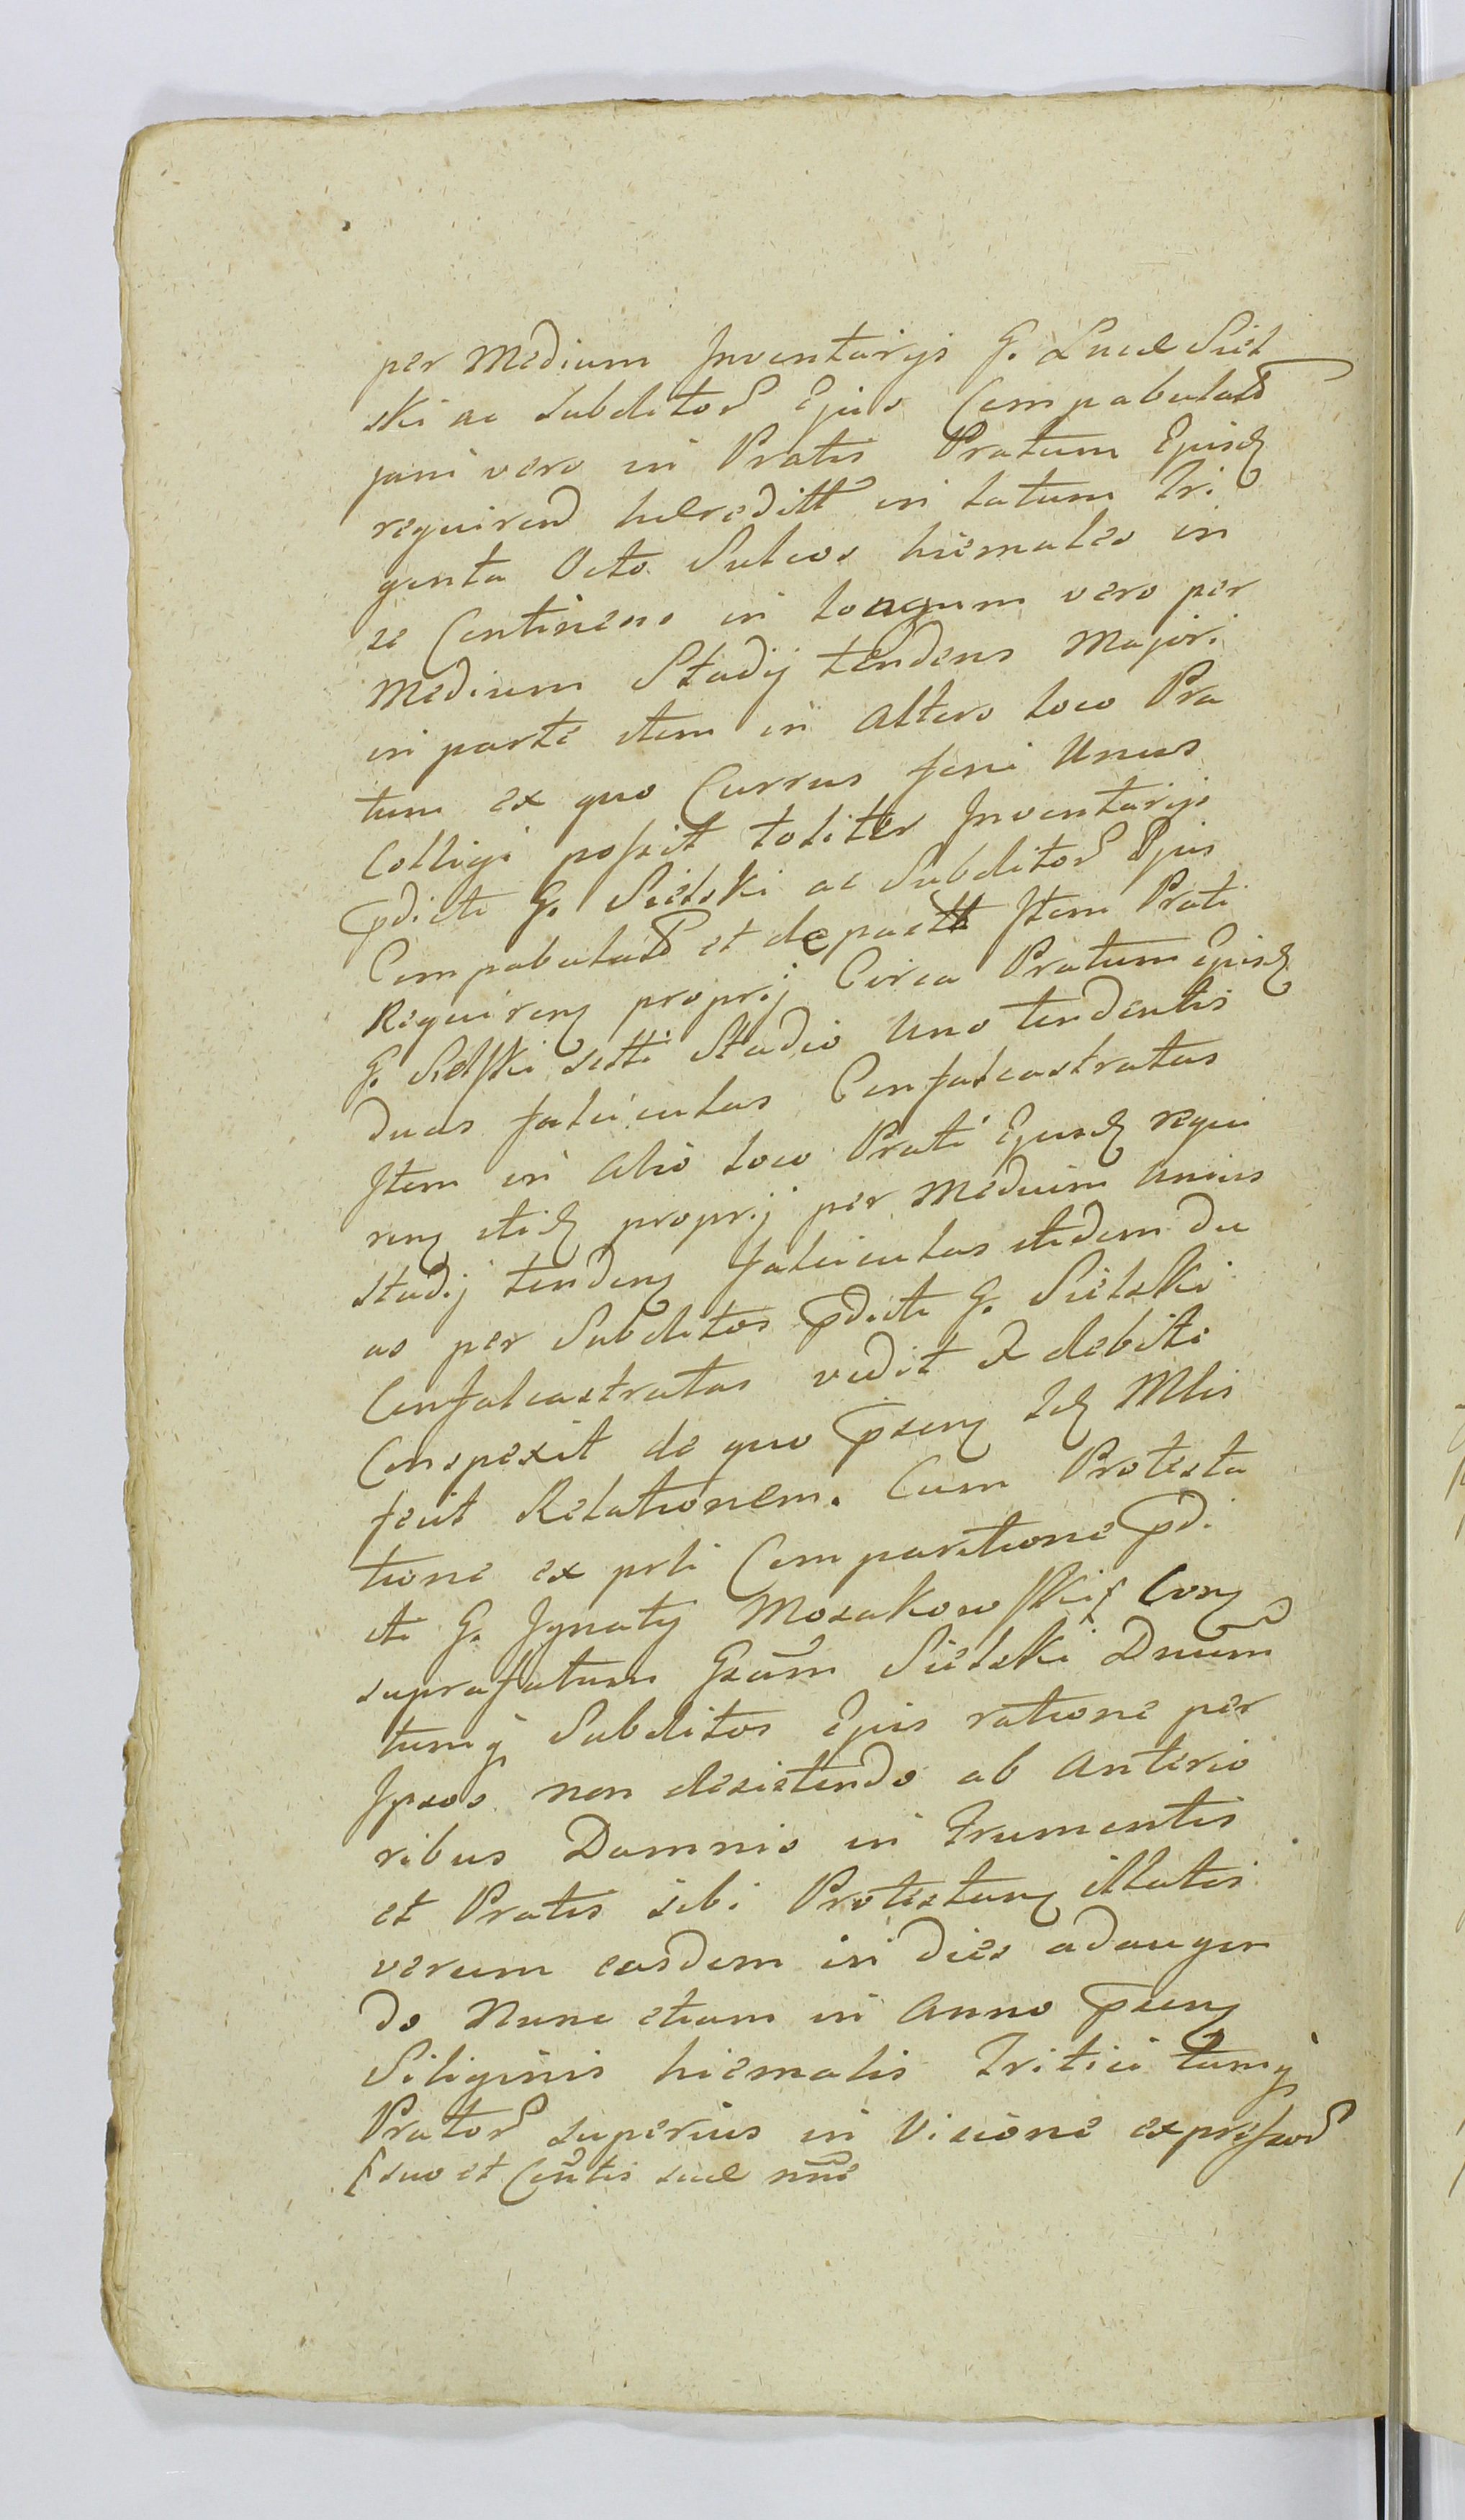 per Medium Inventarijs G. Lucæ Siel
ski ac subditor Ejus Compabulat
jam vero in Pratis Pratum Ejusd
requirend hæreditt in latum Tri
ginta Octo Sulcos hiemales in
se Continens in longum vero per
Medium Stadij tendens Majori
in parte item in altero loco Pra
tum ex quo Currus feni Unus
Colligi possit totiter Inventarijs
pdicti G. Sielski ac Subditor Ejus
Compabulat et depactt Item Prati
Requiren proprij Circa Pratum Ejusd
G. Sielski sitti Stadio Uno tendentis
duas falciculas Confalcastratas
Item in Alio loco Prati Ejusd requi
ren itid proprij per Medium Unius
Stadij tenden falciculas itidem du
as per Subditos pdicti G. Sielski
Confalcastratas vidit et debite
Conspexit de quo psens Id Mlis
fecit Relationem. Cum Protesta
tione ex prti Comparitione pdi
cti G. Ignatij Mosakowski Con
suprafatum Gsum Sielski Dnum
tumq Subditos Ejus ratione per
Ipsos non desistendo ab Anterio
ribus Damnis in Frumentis
et Pratis sibi Protestan illatis
verum easdem in dies adaugen
do Nunc etiam in Anno psen
Siliginis hiemalis Tritici tumq
Prator superius in Visione expressor
suo et Contis suæ nne